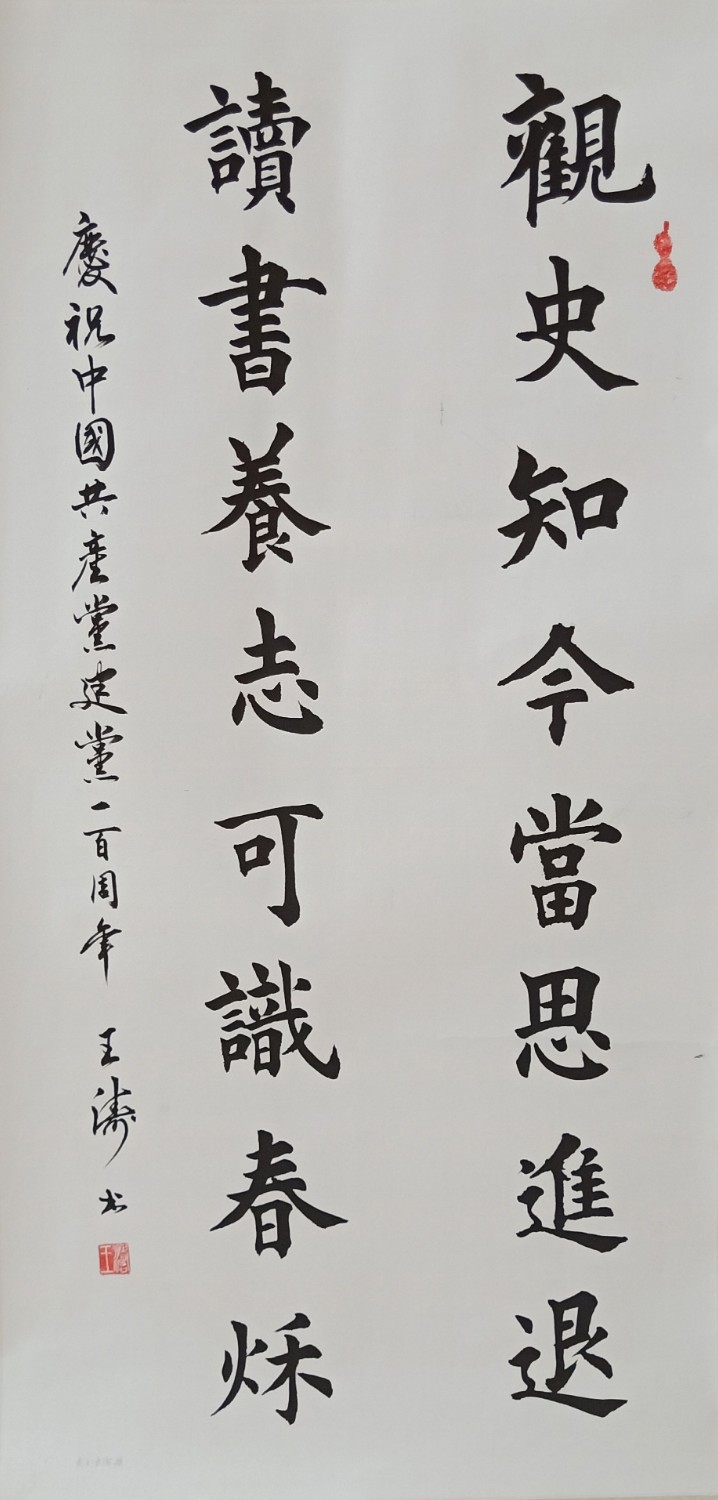 觀史知今當思進退
讀書養志可識春秌
慶祝中國共產黨建黨一百周年 王濤书